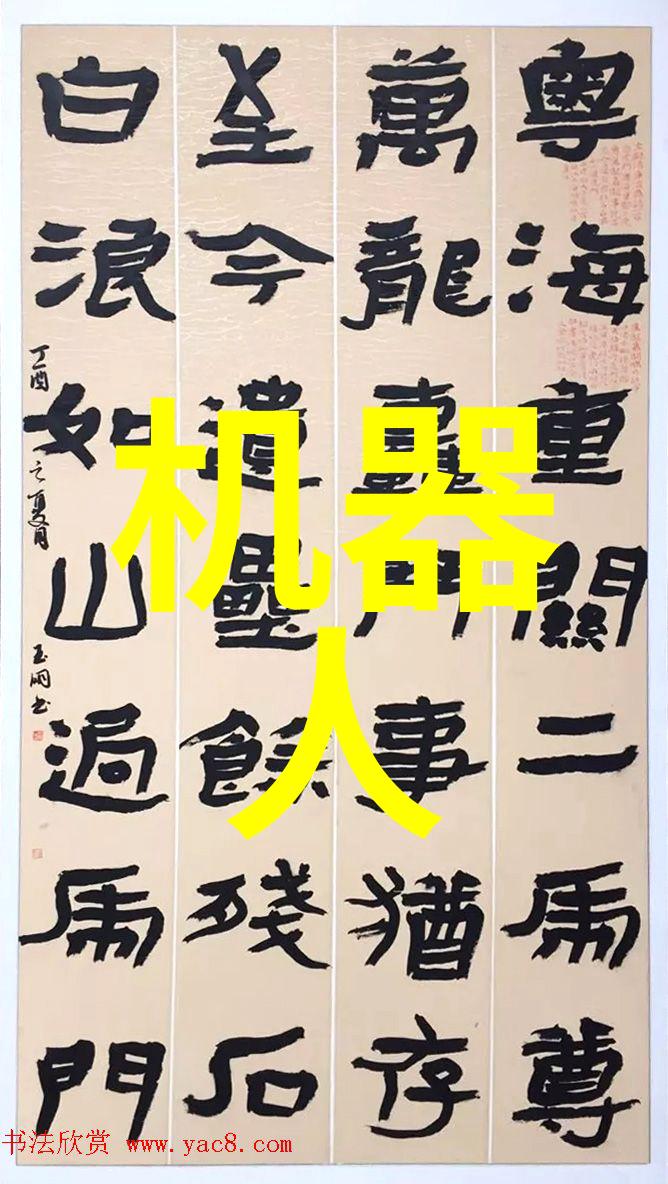 粵海重關二虎尊
萬龍轟鬥事猶存
至今遺壘餘殘石
白浪如山過虎門
丁酉之夏月玉书
机器
人
书法欣赏 www.yac8.com